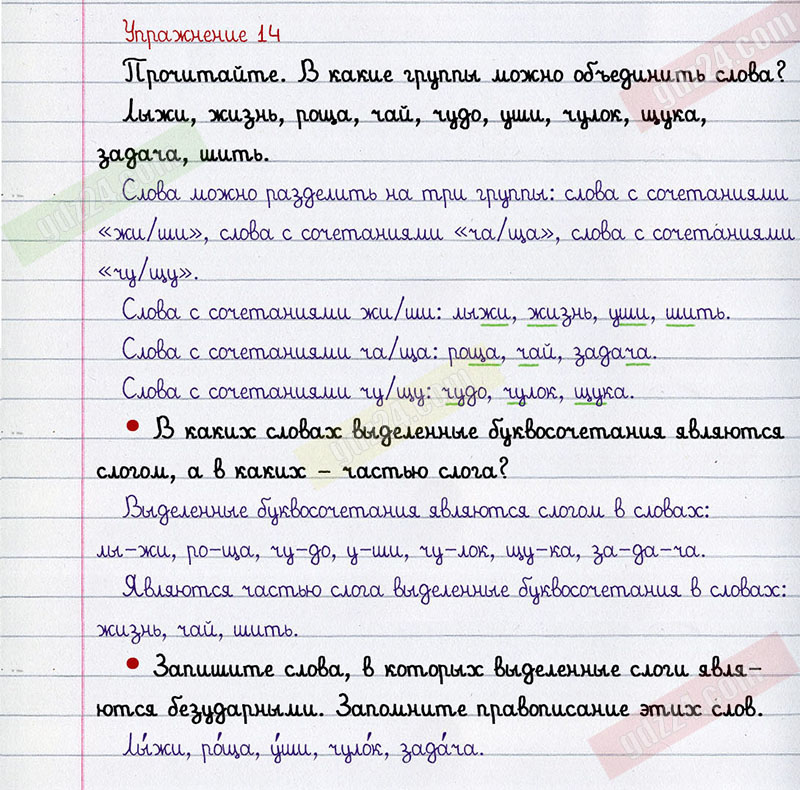 Упражнение 14
Прочитайте. В какие группы можно объединить слова?
Лыжи, жизнь, роща, чай, чудо, уши, чулок, щука,
задача, шить.
Слова можно разделить на три группы: слова с сочетаниями
«жи/ши», слова с сочетаниями «ча/ща», слова с сочетаниями
«чу/щу».
Слова с сочетаниями жи/ши: лыжи, жизнь, уши, шить.
Слова с сочетаниями ча/ща: роща, чай, задача.
Слова с сочетаниями чу/щу: чудо, чулок, щука.
• В каких словах выделенные буквосочетания являются
слогом, а в каких – частью слога?
Выделенные буквосочетания являются слогом в словах:
лы-жи, ро-ща, чу-до, у-ши, чу-лок, щу-ка, за-да-ча.
Являются частью слога выделенные буквосочетания в словах:
жизнь, чай, шить.
• Запишите слова, в которых выделенные слоги явля-
ются безударными. Запомните правописание этих слов.
Лы́жи, ро́ща, у́ши, чуло́к, зада́ча.
gdz24.com
gdz24.com
gdz24.com
gdz24.com